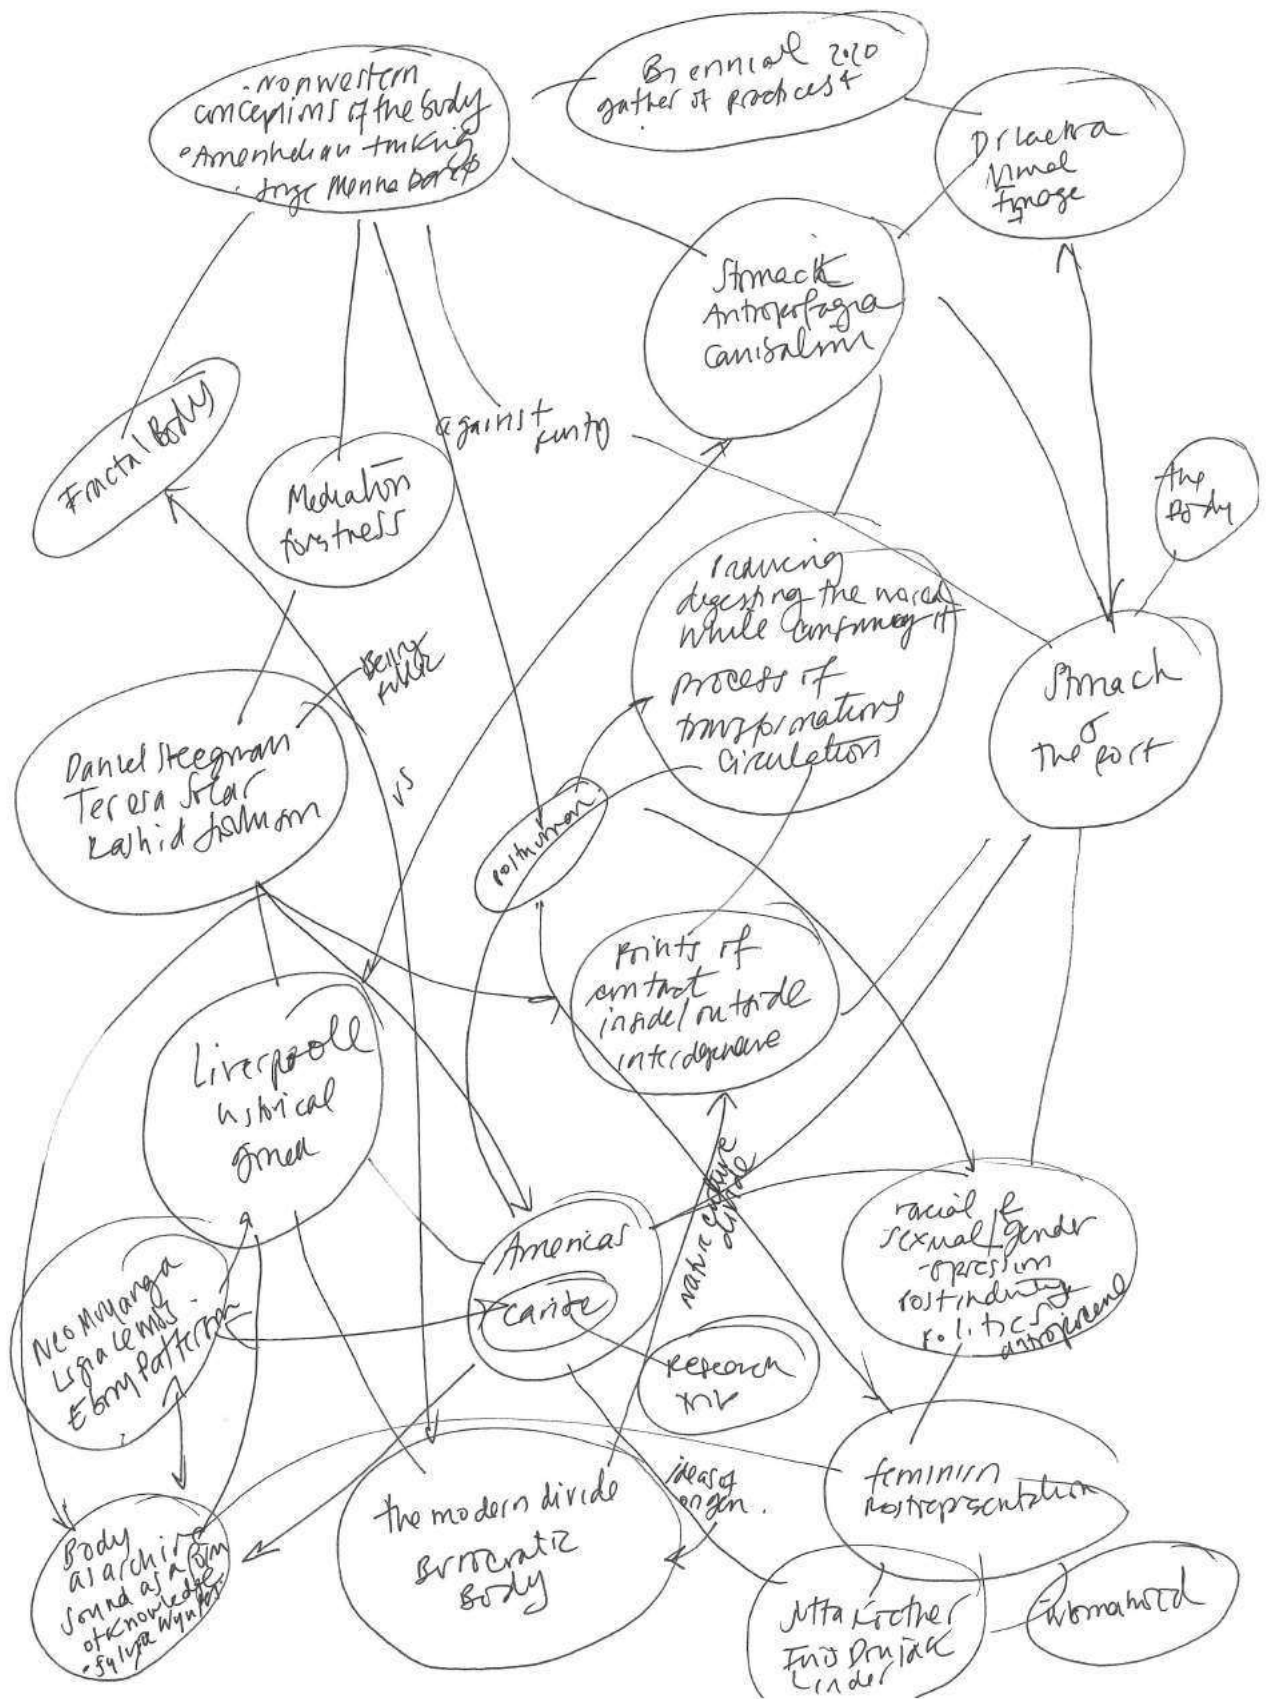 • Nonwestern
conceptions of the body
• Amerindian thinking
• Jorge Menna Barreto
Biennial 2020
gather of practices +
Image
Stomach
Antropofagia
Canibalism
Fractal Body
against
Mediation
forstress
the
Body
Producing
digesting the world
while consuming it
process of
transformations
circulation
Stomach
&
the port
Being
Daniel Steegman
Teresa Solar
Rashid Johnson
vs
posthuman
Points of
contact
inside/outside
Liverpool
historical
nature culture
divide
racial &
sexual/gender
opression
politics
antropocene
Americas
Neo Muyanga
Ligia Lewis
Ebony Patterson
Research
ideas of
the modern divide
Body
feminism
Postrepresentation
Body
as archive
sound as a form
of knowledge
• Sylvia Wynter
Jutta Koether
Ines Doujak
Linder
womanhood